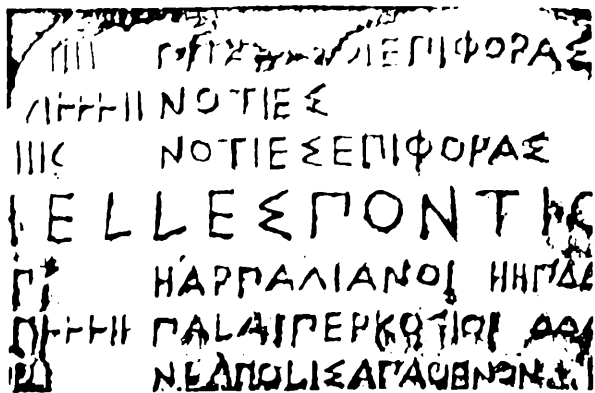 ΙΙΙΙ ΕΠΙΦΟΡΑΣ
Δ𐅂𐅂𐅂ΙΙ ΝΟΤΙΕΣ
ΙΙΙC ΝΟΤΙΕΣΕΠΙΦΟΡΑΣ
ΕLLΕΣΠΟΝΤΙΟ
ΗΑΡΠΑΛΙΑΝΟΙ ΗΗΠΔΔ
Π𐅂𐅂𐅂ΙΙ ΠΑLΑΙΠΕΡΚΟΣΙΟΙ ΔΔΔ
ΝΕΑΠΟLΙΣΑΠΑΘΕΝΟΝ